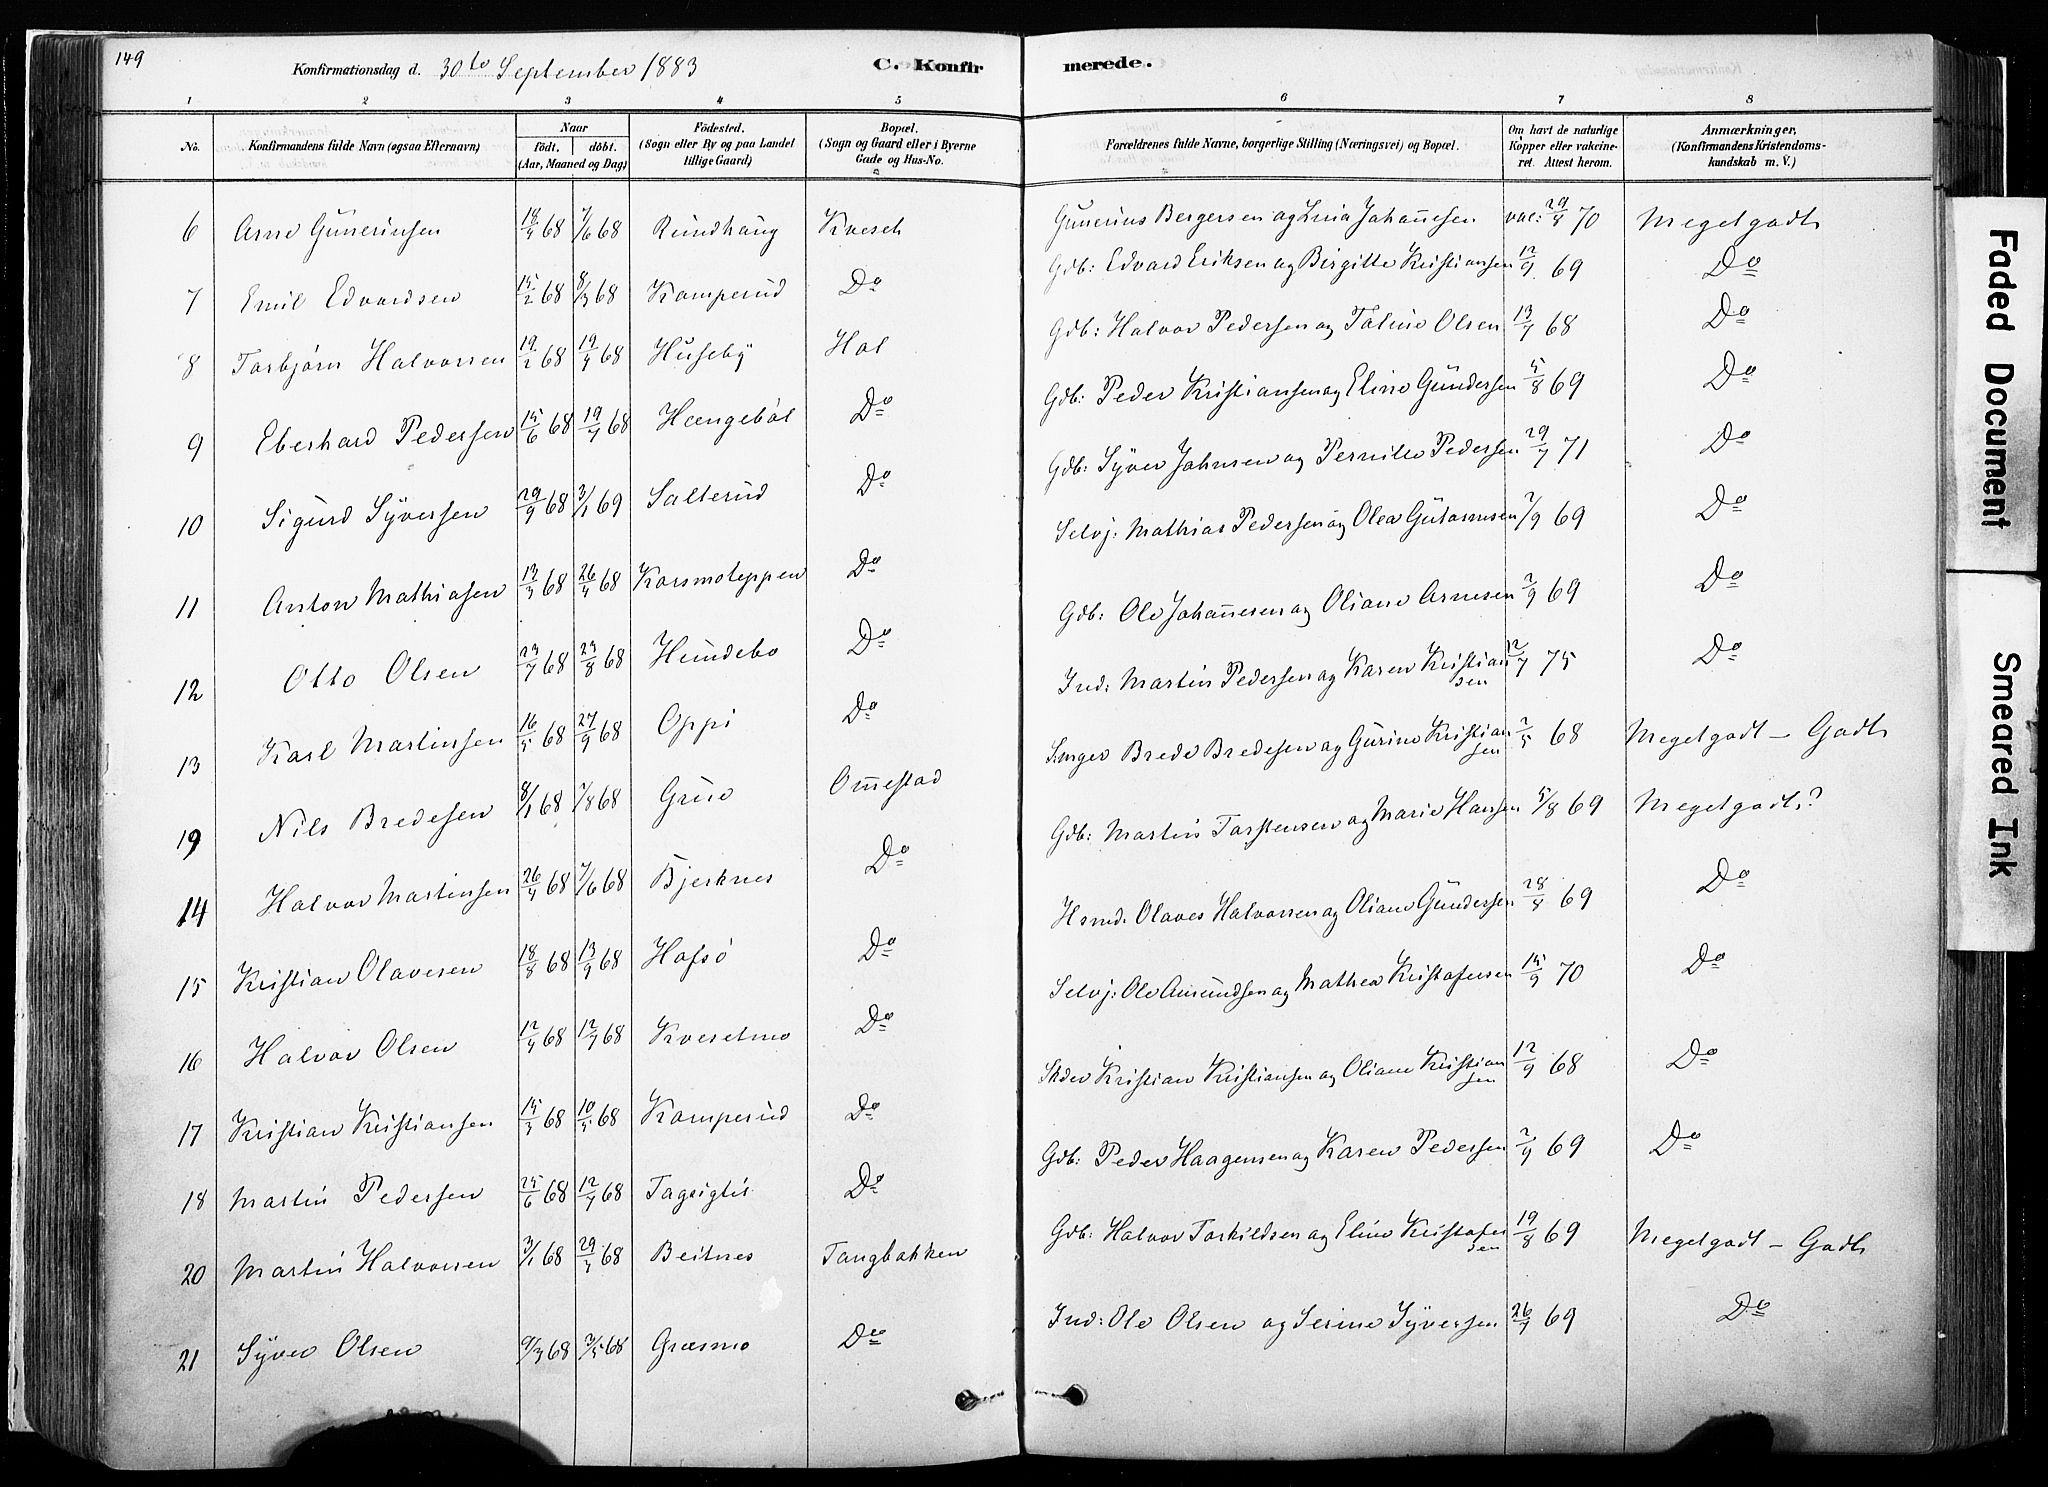 149
Konfirmationsdag d. 30te September 1883
C. Konfirmerede.
1 2 3 4 5 6 7 8
No. Konfirmandens fulde Navn (ogsaa Efternavn) Naar födt. döbt. (Aar, Maaned og Dag) Födested. (Sogn eller By og paa Landet tillige Gaard) Bopæl. (Sogn og Gaard eller i Byerne Gade og Hus-No. Forældrenes fulde Navne, borgerlige Stilling (Næringsvei) og Bopæl. Om havt de naturlige Kopper eller vakcineret. Attest herom. Anmærkninger, (Konfirmandens Kristendomskundskab m. V.)
6 Arne Guneriusen 18/4 68 7/6 68 Rundhaug Kveset Gunerius Bergersen og Lina Johannesen vac: 29/8 70 Megetgodt
7 Emil Edvardsen 15/2 68 8/3 68 Kamperud Do Gdb: Edvard Eriksen og Birgitte Kristiansen 12/9 69 Do
8 Torbjörn Halvorsen 19/2 68 19/4 68 Huseby Hol Gdb: Halvor Pedersen og Taline Olsen 13/7 68 Do
9 Eberhard Pedersen 15/6 68 19/7 68 Hængeböl Do Gdb: Peder Kristiansen og Eline Gundersen 5/8 69 Do
10 Sigurd Syversen 29/9 68 3/1 69 Salterud Do Gdb: Syver Johnsen og Pernille Pedersen 29/7 71 Do
11 Anton Mathiasen 13/3 68 26/4 68 Korsmoteppen Do Selvj: Mathias Pedersen og Olea 2/9 69 Do
12 Otto Olsen 23/7 68 23/8 68 Hundebo Do Gdb: Ole Johannesen og Oliane Arnesen 2/9 69 Do
13 Karl Martinsen 16/5 68 27/9 68 Oppi Do Ind: Martin Pedersen og Karen Kristiansen 12/7 75 Do
19 Nils Bredesen 8/1 68 7/8 68 Grue Ommestad Brede Bredesen og Gurine Kristiansen 2/5 68 Megetgodt - Godt
14 Halvor Martinsen 26/4 68 7/6 68 Bjerknes Do Gdb: Martin Torstensen og Marie Hansen 5/8 69 Megetgodt?
15 Kristian Olavesen 18/8 68 13/9 68 Hofsö Do Hsmd. Olaves Halvorsen og Oliane Gundersen 28/8 69 Do
16 Halvor Olsen 12/4 68 12/7 68 Kvesetmo Do Selvj: Ole Amundsen og Mathea Kristofersen 15/9 70 Do
17 Kristian Kristiansen 15/3 68 10/5 68 Kamperud Do Kristian Kristiansen og Oliane Kristiansen 12/9 68 Do
18 Martin Pedersen 25/6 68 12/7 68 Do Gdb: Peder Haagensen og Karen Pedersen 2/9 69 Do
20 Martin Halvorsen 3/1 68 29/3 68 Beitnes Tangbakken Gdb: Halvor Torkildsen og Eline Kristofersen 19/8 69 Megetgodt - Godt
21 Syver Olsen 9/3 68 3/5 68 Græsmo Do Ind: Ole Olsen og Serine Syversen 26/7 69 Do
Faded Document
Smeared Ink